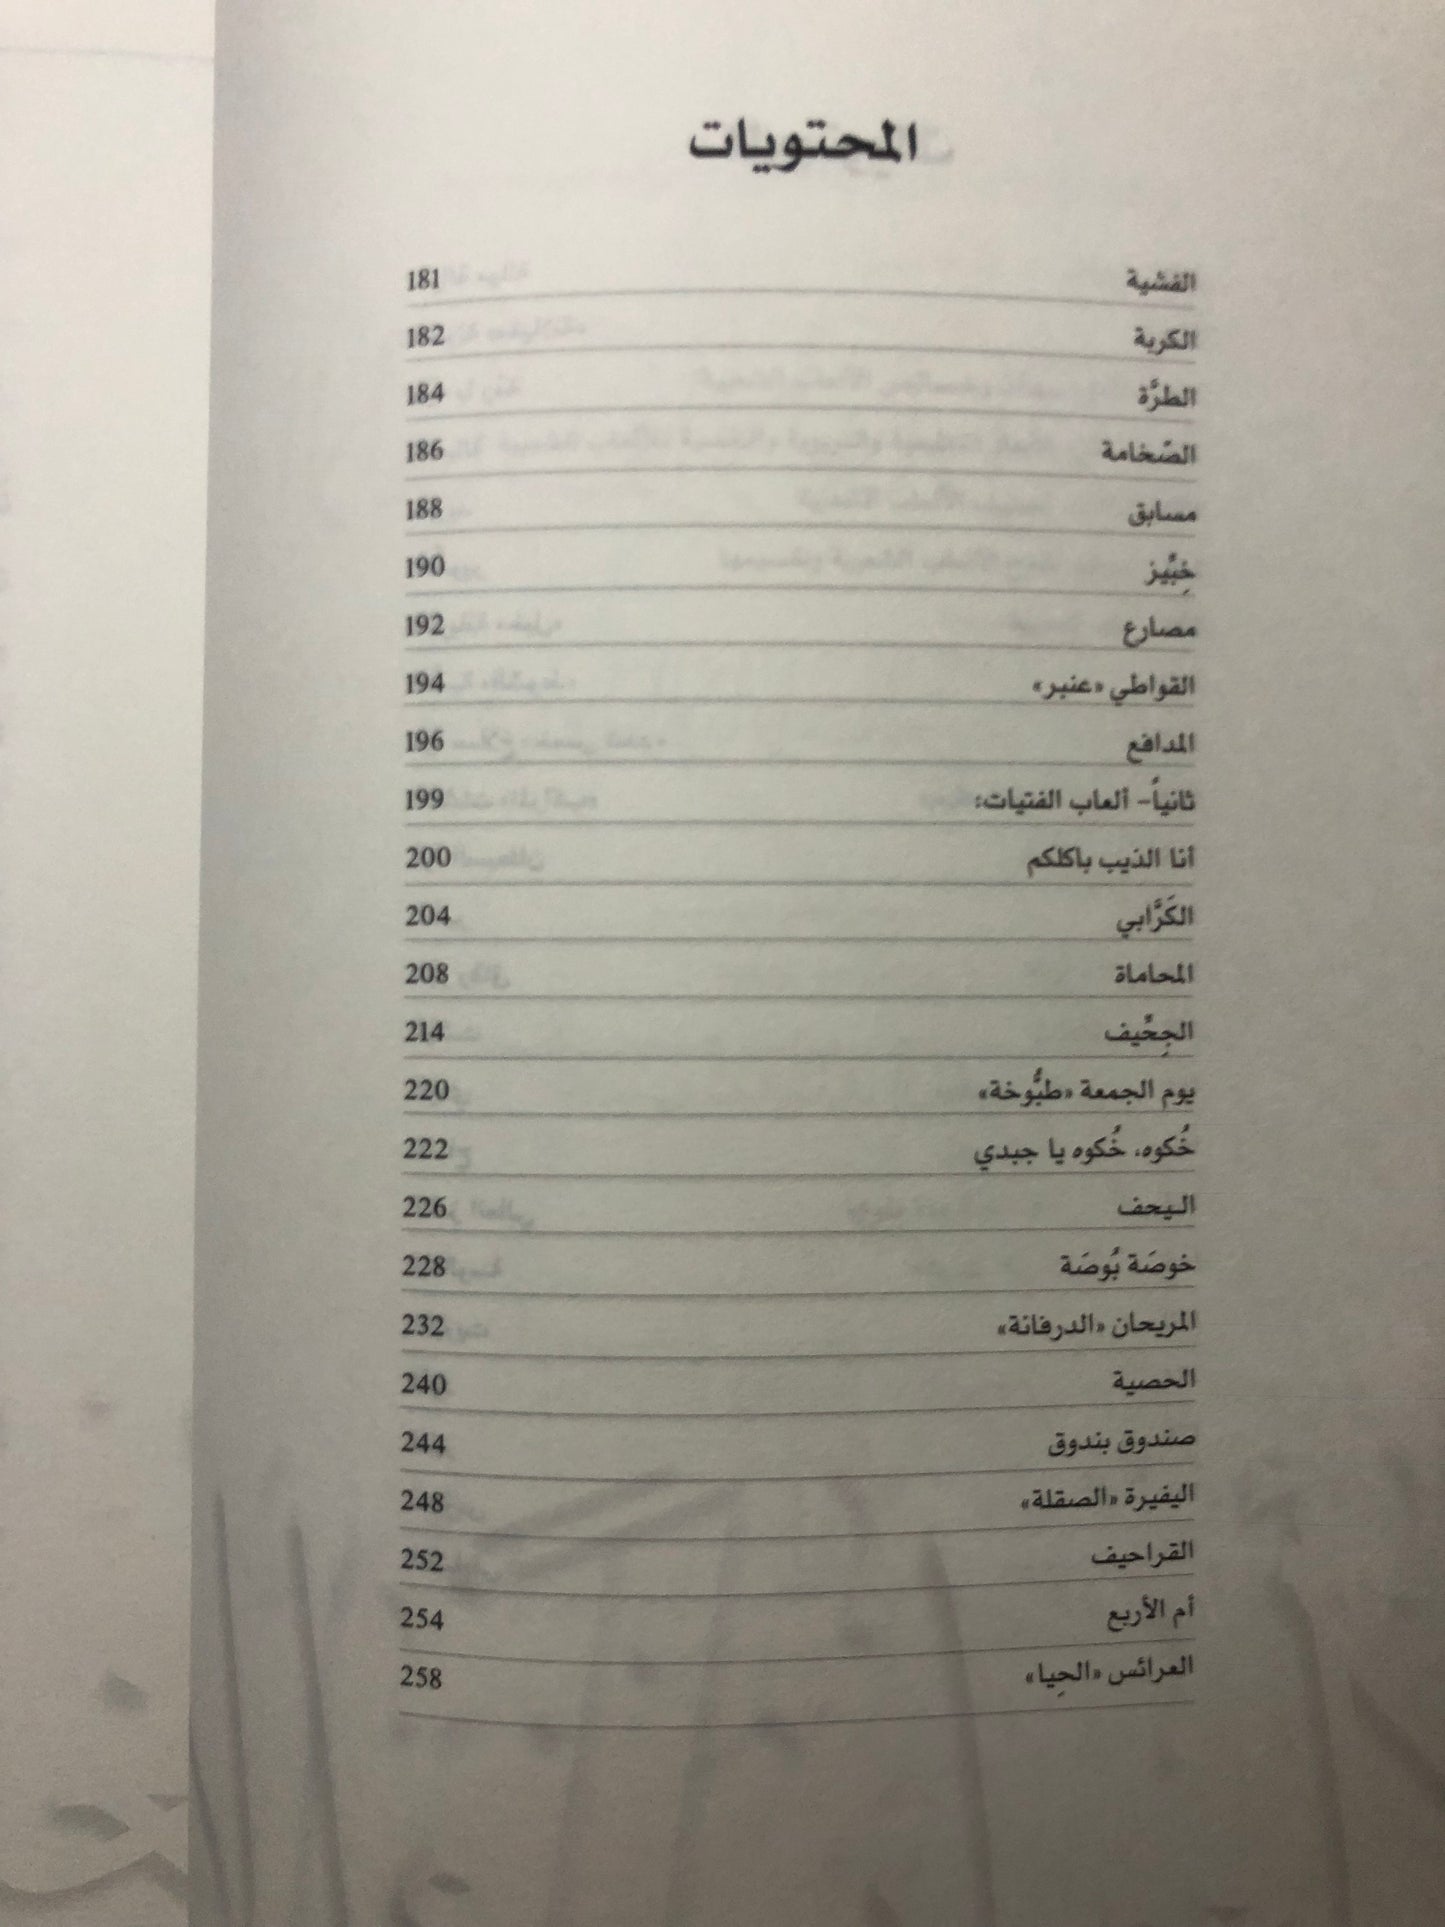 المحتويات
الفشية 181
الكربة 182
الطرَّة 184
الضّخامة 186
مسابق 188
خِبِّيز 190
مصارع 192
القواطي «عنبر» 194
المدافع 196
ثانياً- ألعاب الفتيات: 199
أنا الذيب باكلكم 200
الكَرَّابي 204
المحاماة 208
الجِحِّيف 214
يوم الجمعة «طبُّوخة» 220
خُكوه، خُكوه يا جبدي 222
اليحف 226
خوصَة بُوصَة 228
المريحان «الدرفانة» 232
الحصية 240
صندوق بندوق 244
اليفيرة «الصقلة» 248
القراحيف 252
أم الأربع 254
العرائس «الحِيا» 258